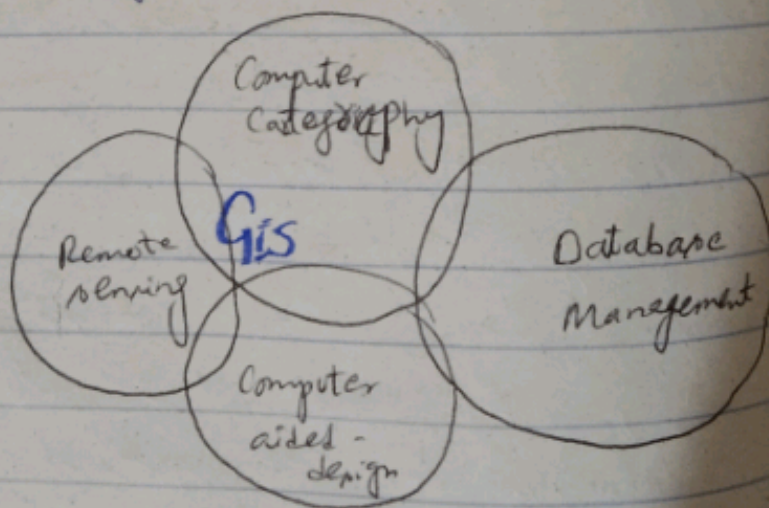 Computer
Categraphy
Gis
Remote
sensing
Database
Management
Computer
aided-
design